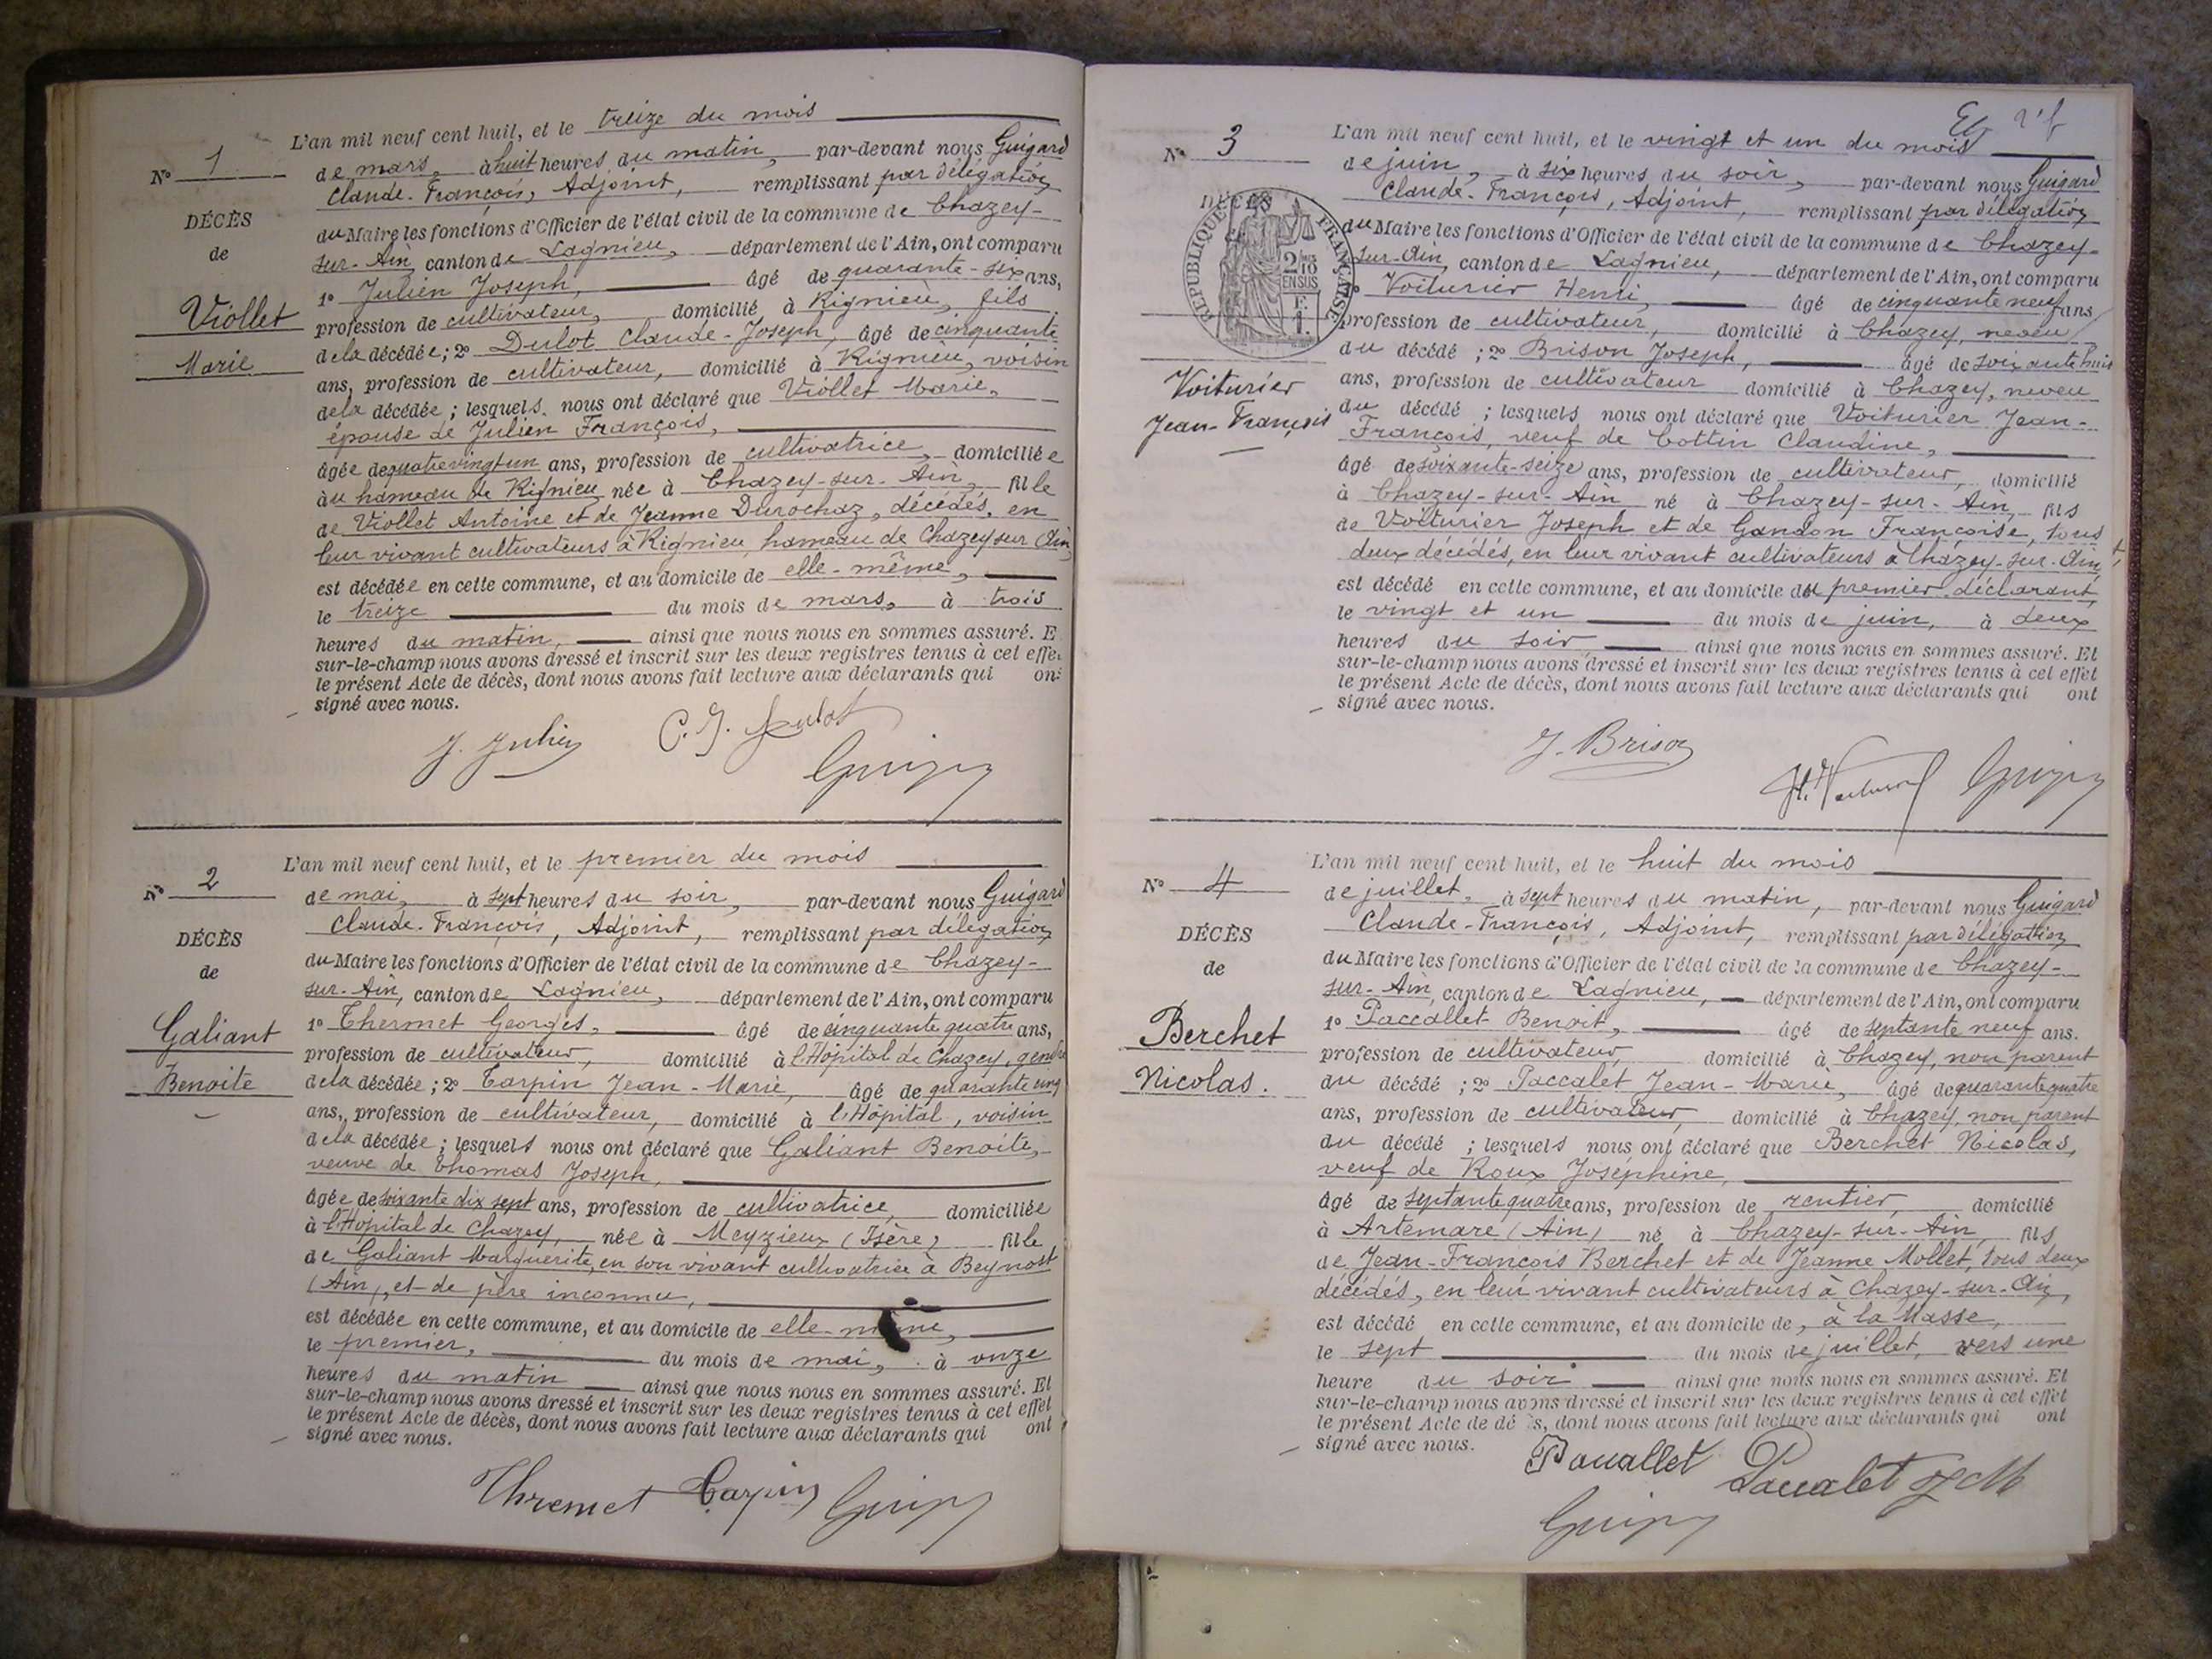 L'an mil neuf cent huit, et le treize du mois
N° 1 de mars, à huit heures du matin, par-devant nous Guigard
Claude-François, Adjoint, remplissant par délégation
DÉCÈS
du Maire les fonctions d'Officier de l'état civil de la commune de Chazey-
de
sur-Ain, canton de Lagnieu, département de l'Ain, ont comparu
1° Julien Joseph, âgé de quarante-six ans,
Viollet
profession de cultivateur, domicilié à Rignieu, fils
Marie
de la décédée; 2° Dulot Claude-Joseph, âgé de cinquante
ans, profession de cultivateur, domicilié à Rignieu, voisin
de la décédée; lesquels nous ont déclaré que Viollet Marie,
épouse de Julien François,
âgée de quatre vingt un ans, profession de cultivatrice, domiciliée
au hameau de Rignieu née à Chazey-sur-Ain, fille
de Viollet Antoine et de Jeanne Durochaz, décédés, en
leur vivant cultivateurs à Rignieu, hameau de Chazey sur Ain,
est décédée en cette commune, et au domicile de elle-même,
le treize du mois de mars, à trois
heures du matin, ainsi que nous nous en sommes assuré. E
sur-le-champ nous avons dressé et inscrit sur les deux registres tenus à cet effe
le présent Acte de décès, dont nous avons fait lecture aux déclarants qui on
signé avec nous.
J. Julien C. J. Dulot
Guigard
L'an mil neuf cent huit, et le premier du mois
N° 2 de mai, à sept heures du soir, par-devant nous Guigard
Claude-François, Adjoint, remplissant par délégation
DÉCÈS
du Maire les fonctions d'Officier de l'état civil de la commune de Chazey-
de
sur-Ain, canton de Lagnieu, département de l'Ain, ont comparu
Galiant
1° Thermet Georges, âgé de cinquante quatre ans,
profession de cultivateur, domicilié à l'Hôpital de Chazey, gendre
Benoite
de la décédée; 2° Tarpin Jean-Marie, âgé de quarante cinq
ans, profession de cultivateur, domicilié à l'Hôpital, voisin
de la décédée; lesquels nous ont déclaré que Galiant Benoite,
veuve de Thomas Joseph,
âgée de soixante dix sept ans, profession de cultivatrice, domiciliée
à l'Hôpital de Chazey, née à Meyzieux (Isère) fille
de Galiant Marguerite, en son vivant cultivatrice à Beynost
(Ain), et de père inconnu,
est décédée en cette commune, et au domicile de elle-même,
le premier, du mois de mai, à onze
heures du matin ainsi que nous nous en sommes assuré. Et
sur-le-champ nous avons dressé et inscrit sur les deux registres tenus à cet effet
le présent Acte de décès, dont nous avons fait lecture aux déclarants qui ont
signé avec nous.
Thremet Tarpin Guigard
L'an mil neuf cent huit, et le vingt et un du mois
N° 3 de juin, à six heures du soir, par-devant nous Guigard
Claude-François, Adjoint, remplissant par délégation
DÉCÈS
RÉPUBLIQUE FRANÇAISE
2/10 EN SUS
F. 1.
du Maire les fonctions d'Officier de l'état civil de la commune de Chazey-
sur-Ain, canton de Lagnieu, département de l'Ain, ont comparu
Voiturier Henri, âgé de cinquante neuf ans
profession de cultivateur, domicilié à Chazey, neveu
du décédé; 2° Brison Joseph, âgé de soixante huit
Voiturier
ans, profession de cultivateur domicilié à Chazey, neveu
Jean-François
du décédé; lesquels nous ont déclaré que Voiturier Jean-
François, veuf de Cottin Claudine,
âgé de soixante-seize ans, profession de cultivateur, domicilié
à Chazey-sur-Ain né à Chazey-sur-Ain, fils
de Voiturier Joseph et de Gandon Françoise, tous
deux décédés, en leur vivant cultivateurs à Chazey-sur-Ain,
est décédé en cette commune, et au domicile du premier déclarant,
le vingt et un du mois de juin, à deux
heures du soir ainsi que nous nous en sommes assuré. Et
sur-le-champ nous avons dressé et inscrit sur les deux registres tenus à cet effet
le présent Acte de décès, dont nous avons fait lecture aux déclarants qui ont
signé avec nous.
J. Brison
H. Voiturier Guigard
L'an mil neuf cent huit, et le huit du mois
N° 4 de juillet, à sept heures du matin, par-devant nous Guigard
Claude-François, Adjoint, remplissant par délégation
DÉCÈS
du Maire les fonctions d'Officier de l'état civil de la commune de Chazey-
de
sur-Ain, canton de Lagnieu, département de l'Ain, ont comparu
Berchet
1° Paccallet Benoit, âgé de septante neuf ans.
profession de cultivateur, domicilié à Chazey, non parent
Nicolas.
du décédé; 2° Paccalet Jean-Marie, âgé de quarante quatre
ans, profession de cultivateur, domicilié à Chazey, non parent
du décédé; lesquels nous ont déclaré que Berchet Nicolas,
veuf de Roux Joséphine,
âgé de septante quatre ans, profession de rentier, domicilié
à Artemare (Ain) né à Chazey-sur-Ain, fils
de Jean-François Berchet et de Jeanne Mollet, tous deux
décédés, en leur vivant cultivateurs à Chazey-sur-Ain,
est décédé en cette commune, et au domicile de, à la Masse,
le sept du mois de juillet, vers une
heure du soir ainsi que nous nous en sommes assuré. Et
sur-le-champ nous avons dressé et inscrit sur les deux registres tenus à cet effet
le présent Acte de dé s, dont nous avons fait lecture aux déclarants qui ont
signé avec nous.
Pacallet Paccalet JM
Guigard